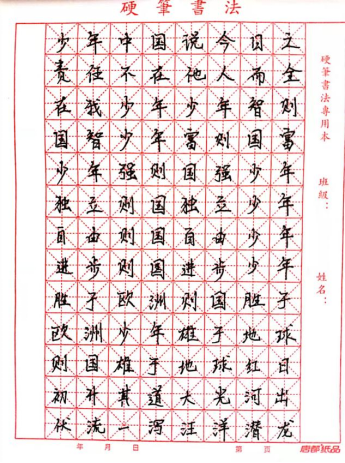 硬筆書法
少年中国说今日之
责任不在他人而全
在我少年少年智则
国智少年富则国富
少年强则国强少年
独立则国独立少年
自由则国自由少年
进步则国进步少年
胜于欧洲则国胜于
欧洲少年雄于地球
则国雄于地球红日
初升其道大光河出
伏流一泻汪洋潜龙
硬筆書法專用本
班級：
姓名：
年 月 日 第 页